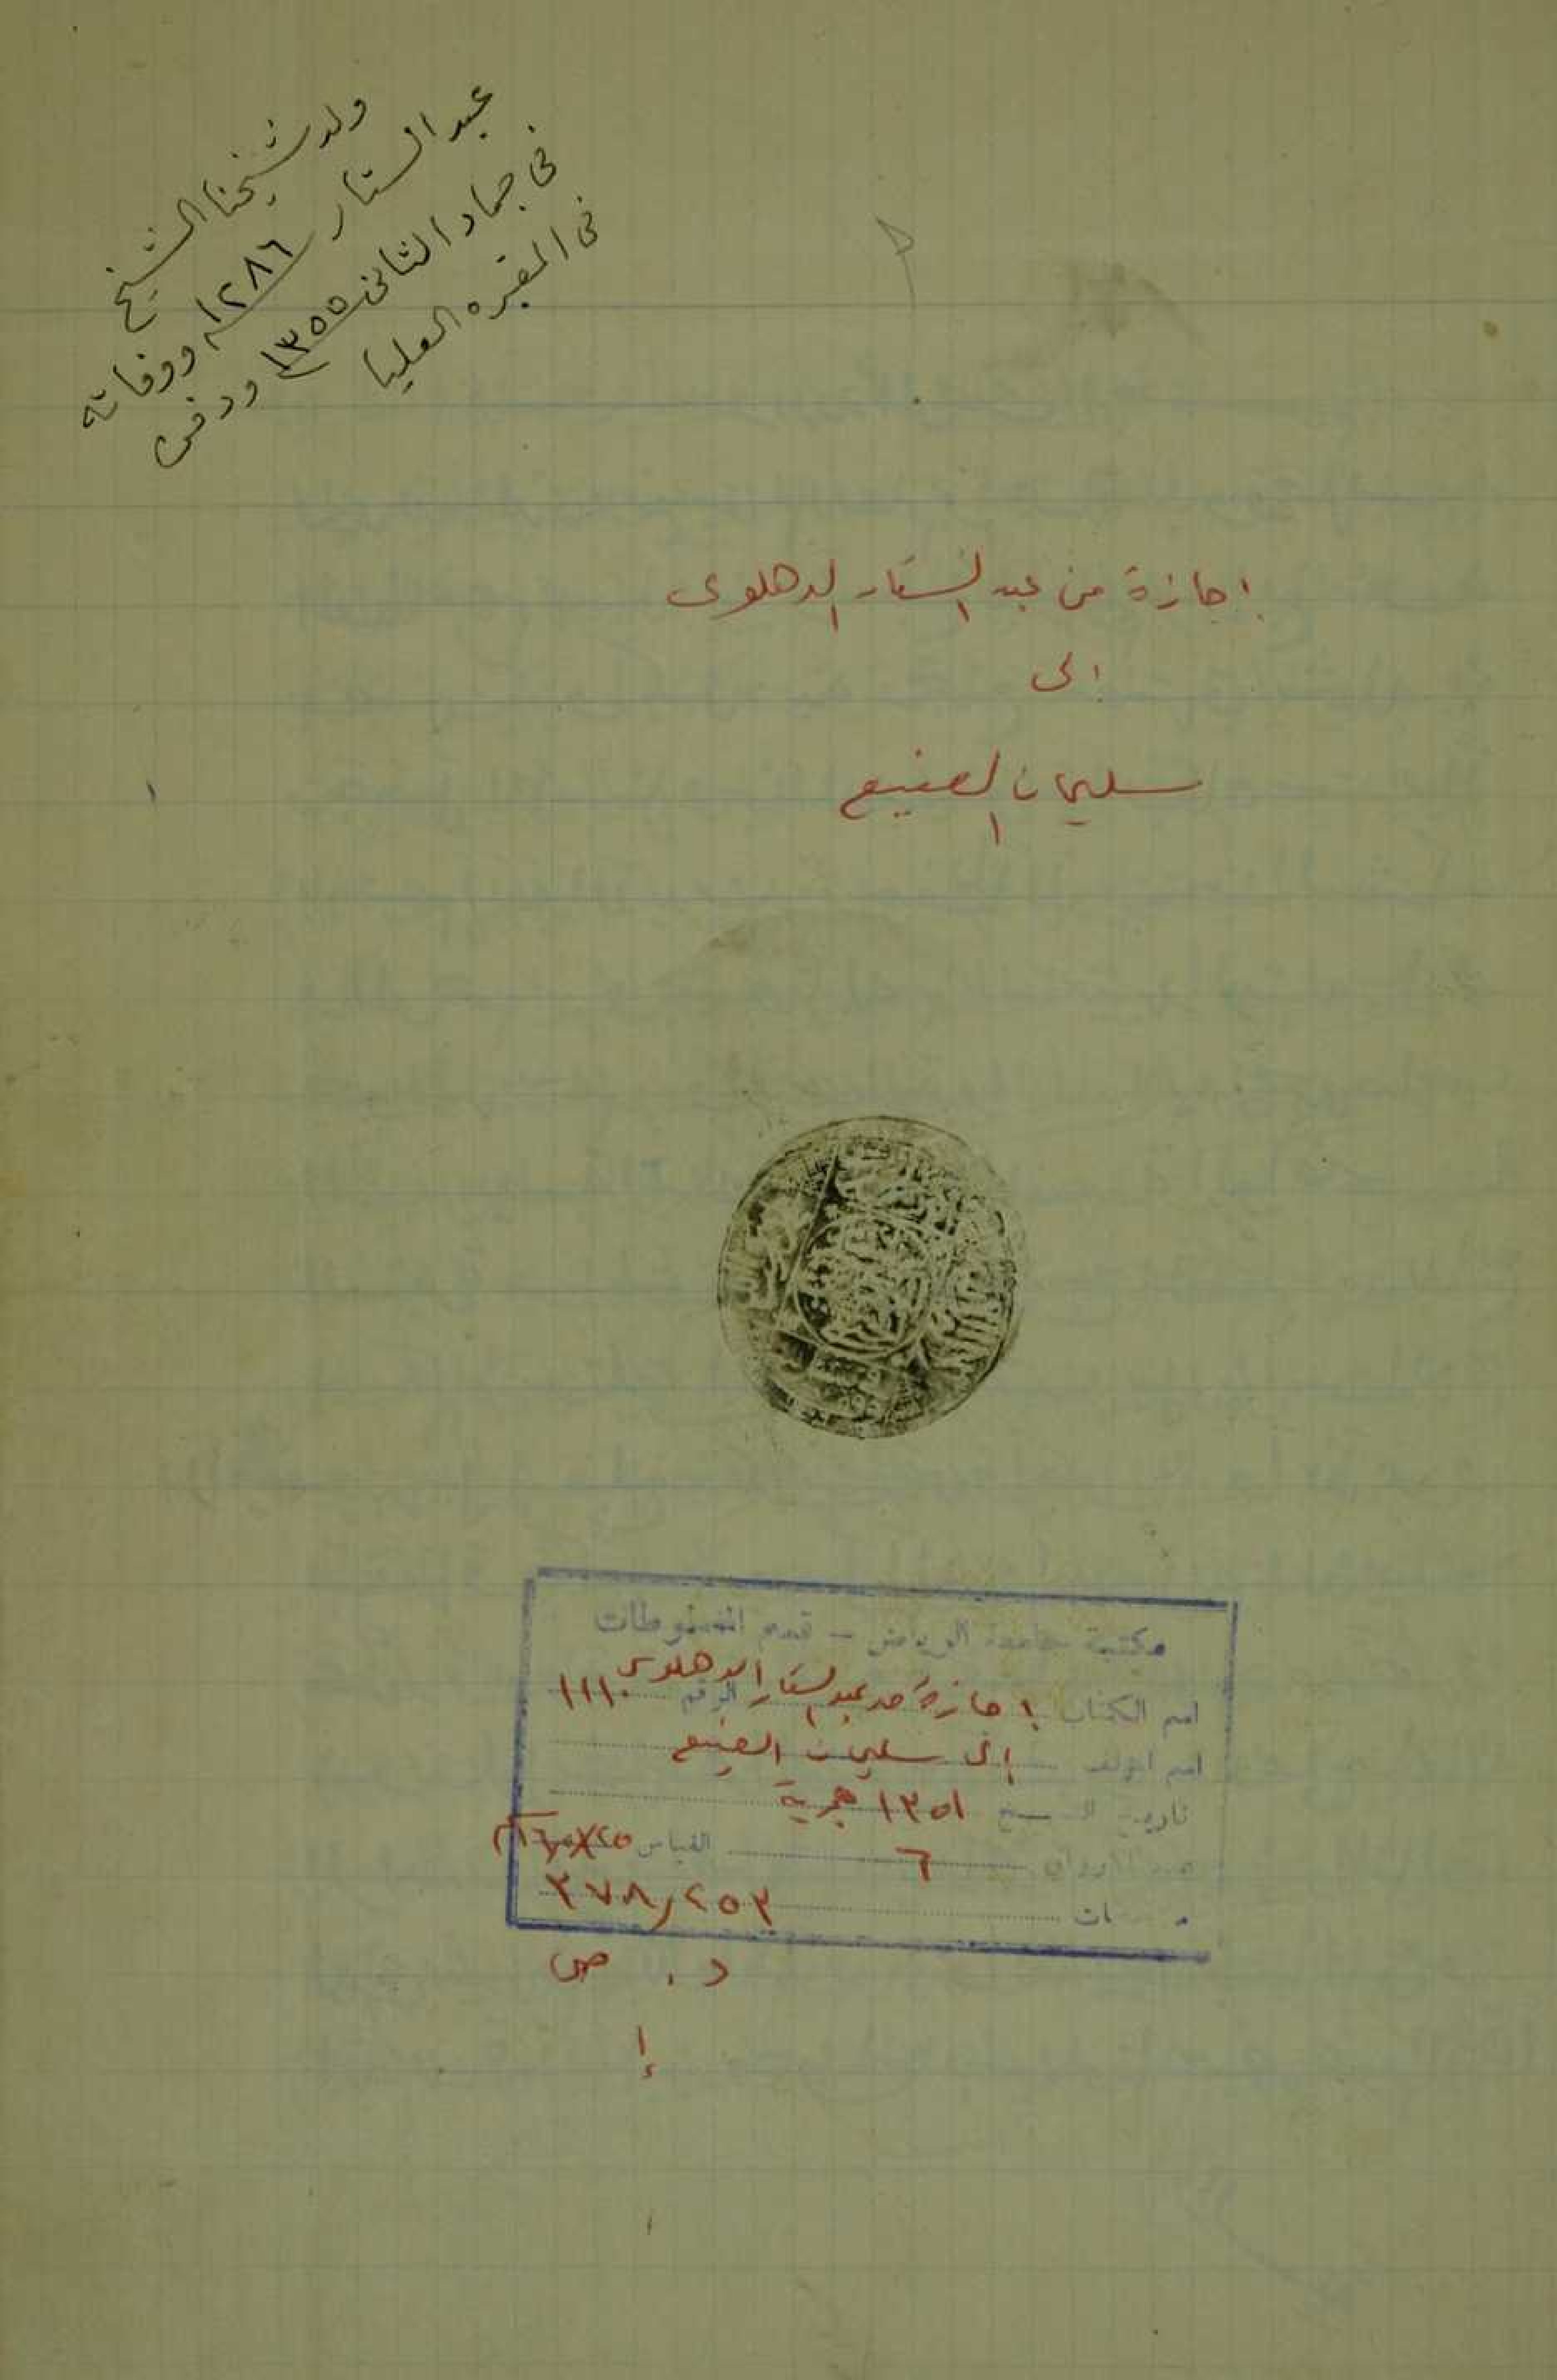 ولد شيخنا الشيخ
عبد الستار ١٢٨٦ ووفاته
في جماد الثاني ١٣٥٥ ودفن
في المقبره العليا
اجازة من عبد الستار الدهلوى
الى
سليمان الصنيع
مكتبة جامعة الرياض - قسم المخطوطات
اسم الكتاب اجازة من عبد الستار الدهلوى الرقم ١١١٠
اسم المؤلف إلى سليمان الصنيع
تاريخ النسخ ١٣٥١ هجرية
عدد الاوراق ٦ القياس
٢٥٣ر٣٧٨
د . ص
إ